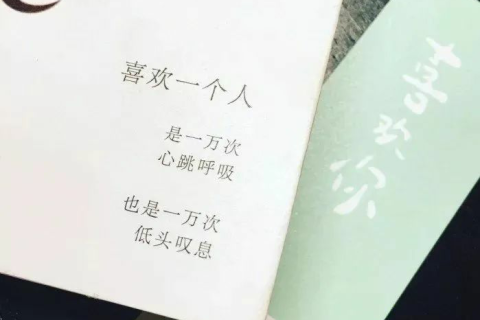 喜欢一个人
是一万次
心跳呼吸
也是一万次
低头叹息
喜欢你